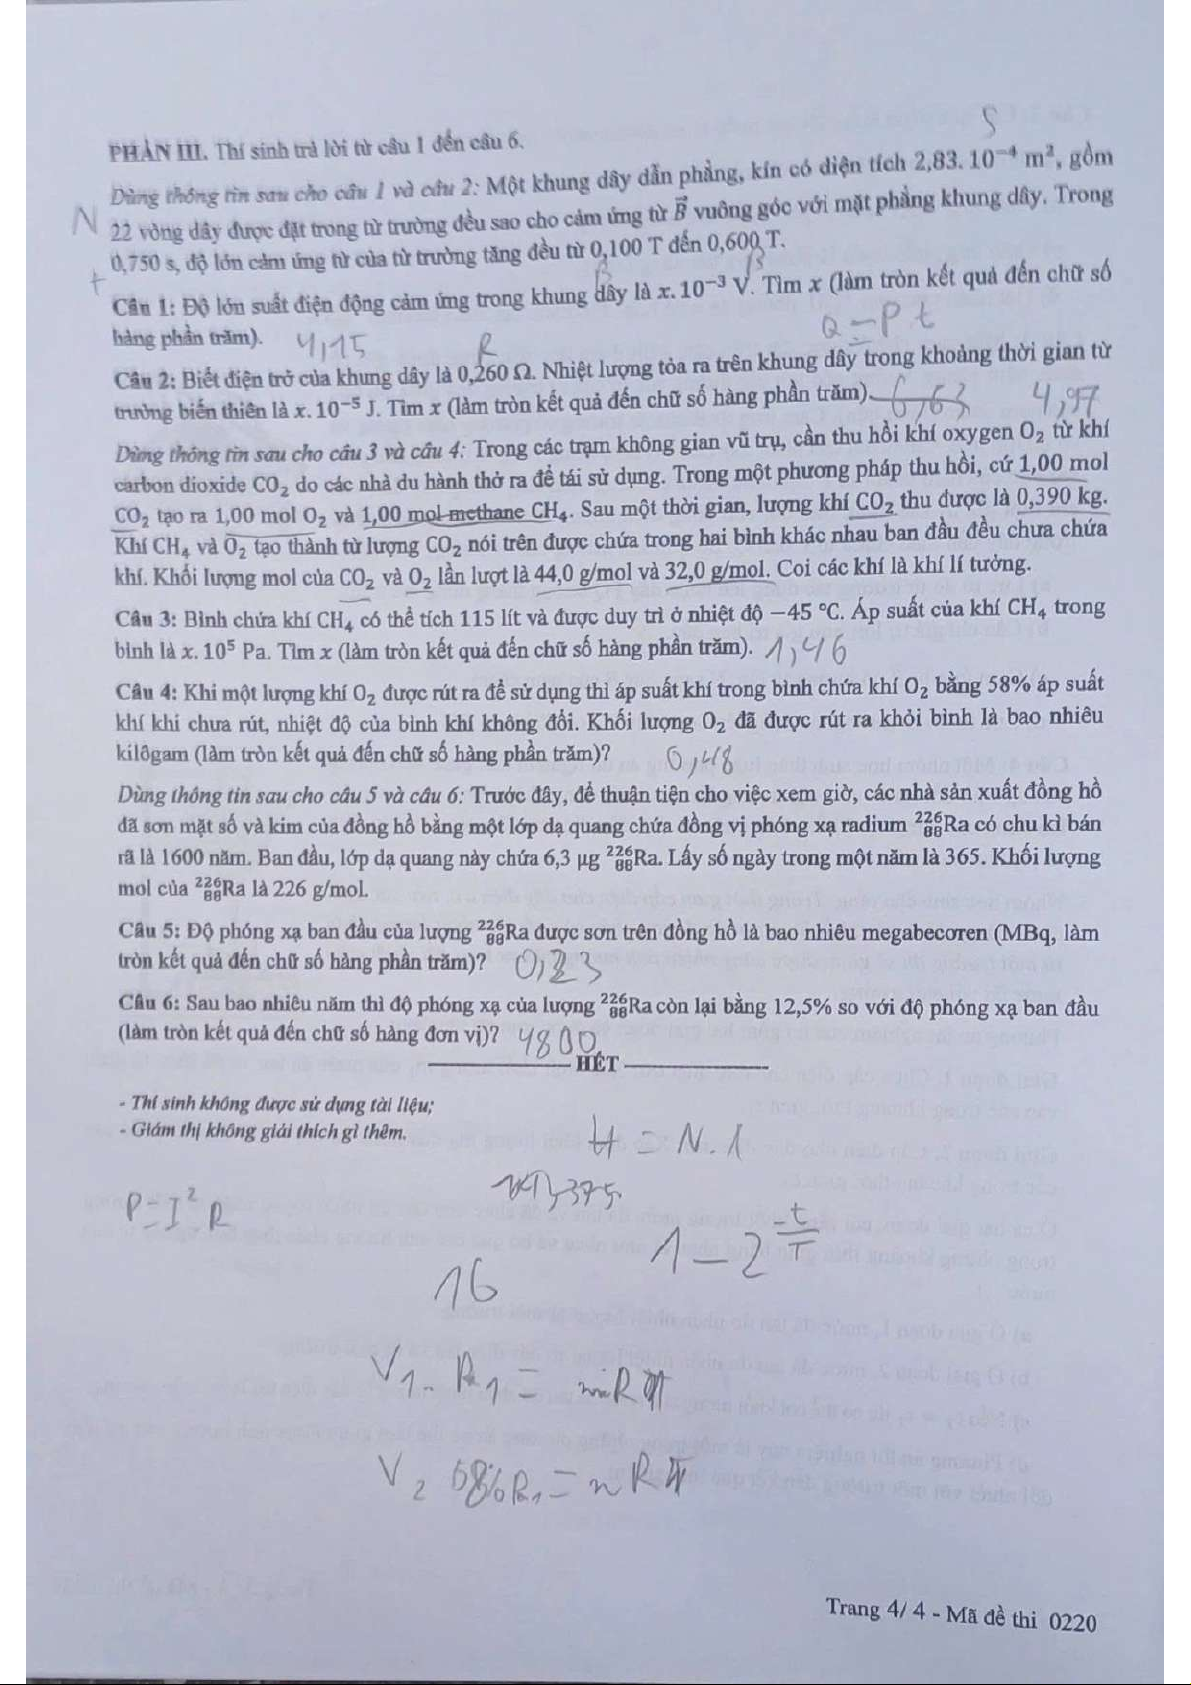 S
PHẦN III. Thí sinh trả lời từ câu 1 đến câu 6.
Dùng thông tin sau cho câu 1 và câu 2: Một khung dây dẫn phẳng, kín có diện tích 2,83. 10⁻⁴ m², gồm
N 22 vòng dây được đặt trong từ trường đều sao cho cảm ứng từ B⃗ vuông góc với mặt phẳng khung dây. Trong
t 0,750 s, độ lớn cảm ứng từ của từ trường tăng đều từ 0,100 T đến 0,600 T.
B B
Câu 1: Độ lớn suất điện động cảm ứng trong khung dây là x. 10⁻³ V. Tìm x (làm tròn kết quả đến chữ số
hàng phần trăm). 4,15 R Q = P t
Câu 2: Biết điện trở của khung dây là 0,260 Ω. Nhiệt lượng tỏa ra trên khung dây trong khoảng thời gian từ
trường biến thiên là x. 10⁻⁵ J. Tìm x (làm tròn kết quả đến chữ số hàng phần trăm). 6,63 4,97
Dùng thông tin sau cho câu 3 và câu 4: Trong các trạm không gian vũ trụ, cần thu hồi khí oxygen O₂ từ khí
carbon dioxide CO₂ do các nhà du hành thở ra để tái sử dụng. Trong một phương pháp thu hồi, cứ 1,00 mol
CO₂ tạo ra 1,00 mol O₂ và 1,00 mol methane CH₄. Sau một thời gian, lượng khí CO₂ thu được là 0,390 kg.
Khí CH₄ và O₂ tạo thành từ lượng CO₂ nói trên được chứa trong hai bình khác nhau ban đầu đều chưa chứa
khí. Khối lượng mol của CO₂ và O₂ lần lượt là 44,0 g/mol và 32,0 g/mol. Coi các khí là khí lí tưởng.
Câu 3: Bình chứa khí CH₄ có thể tích 115 lít và được duy trì ở nhiệt độ −45 °C. Áp suất của khí CH₄ trong
bình là x. 10⁵ Pa. Tìm x (làm tròn kết quả đến chữ số hàng phần trăm). 1,46
Câu 4: Khi một lượng khí O₂ được rút ra để sử dụng thì áp suất khí trong bình chứa khí O₂ bằng 58% áp suất
khí khi chưa rút, nhiệt độ của bình khí không đổi. Khối lượng O₂ đã được rút ra khỏi bình là bao nhiêu
kilôgam (làm tròn kết quả đến chữ số hàng phần trăm)? 0,48
Dùng thông tin sau cho câu 5 và câu 6: Trước đây, để thuận tiện cho việc xem giờ, các nhà sản xuất đồng hồ
đã sơn mặt số và kim của đồng hồ bằng một lớp dạ quang chứa đồng vị phóng xạ radium ²²⁶₈₈Ra có chu kì bán
rã là 1600 năm. Ban đầu, lớp dạ quang này chứa 6,3 μg ²²⁶₈₈Ra. Lấy số ngày trong một năm là 365. Khối lượng
mol của ²²⁶₈₈Ra là 226 g/mol.
Câu 5: Độ phóng xạ ban đầu của lượng ²²⁶₈₈Ra được sơn trên đồng hồ là bao nhiêu megabecơren (MBq, làm
tròn kết quả đến chữ số hàng phần trăm)? 0,23
Câu 6: Sau bao nhiêu năm thì độ phóng xạ của lượng ²²⁶₈₈Ra còn lại bằng 12,5% so với độ phóng xạ ban đầu
(làm tròn kết quả đến chữ số hàng đơn vị)? 4800
HẾT
- Thí sinh không được sử dụng tài liệu;
- Giám thị không giải thích gì thêm.
H = N.λ
P = I².R
1 − 2^(−t/T)
16
V₁.
V₂
Trang 4/ 4 - Mã đề thi 0220